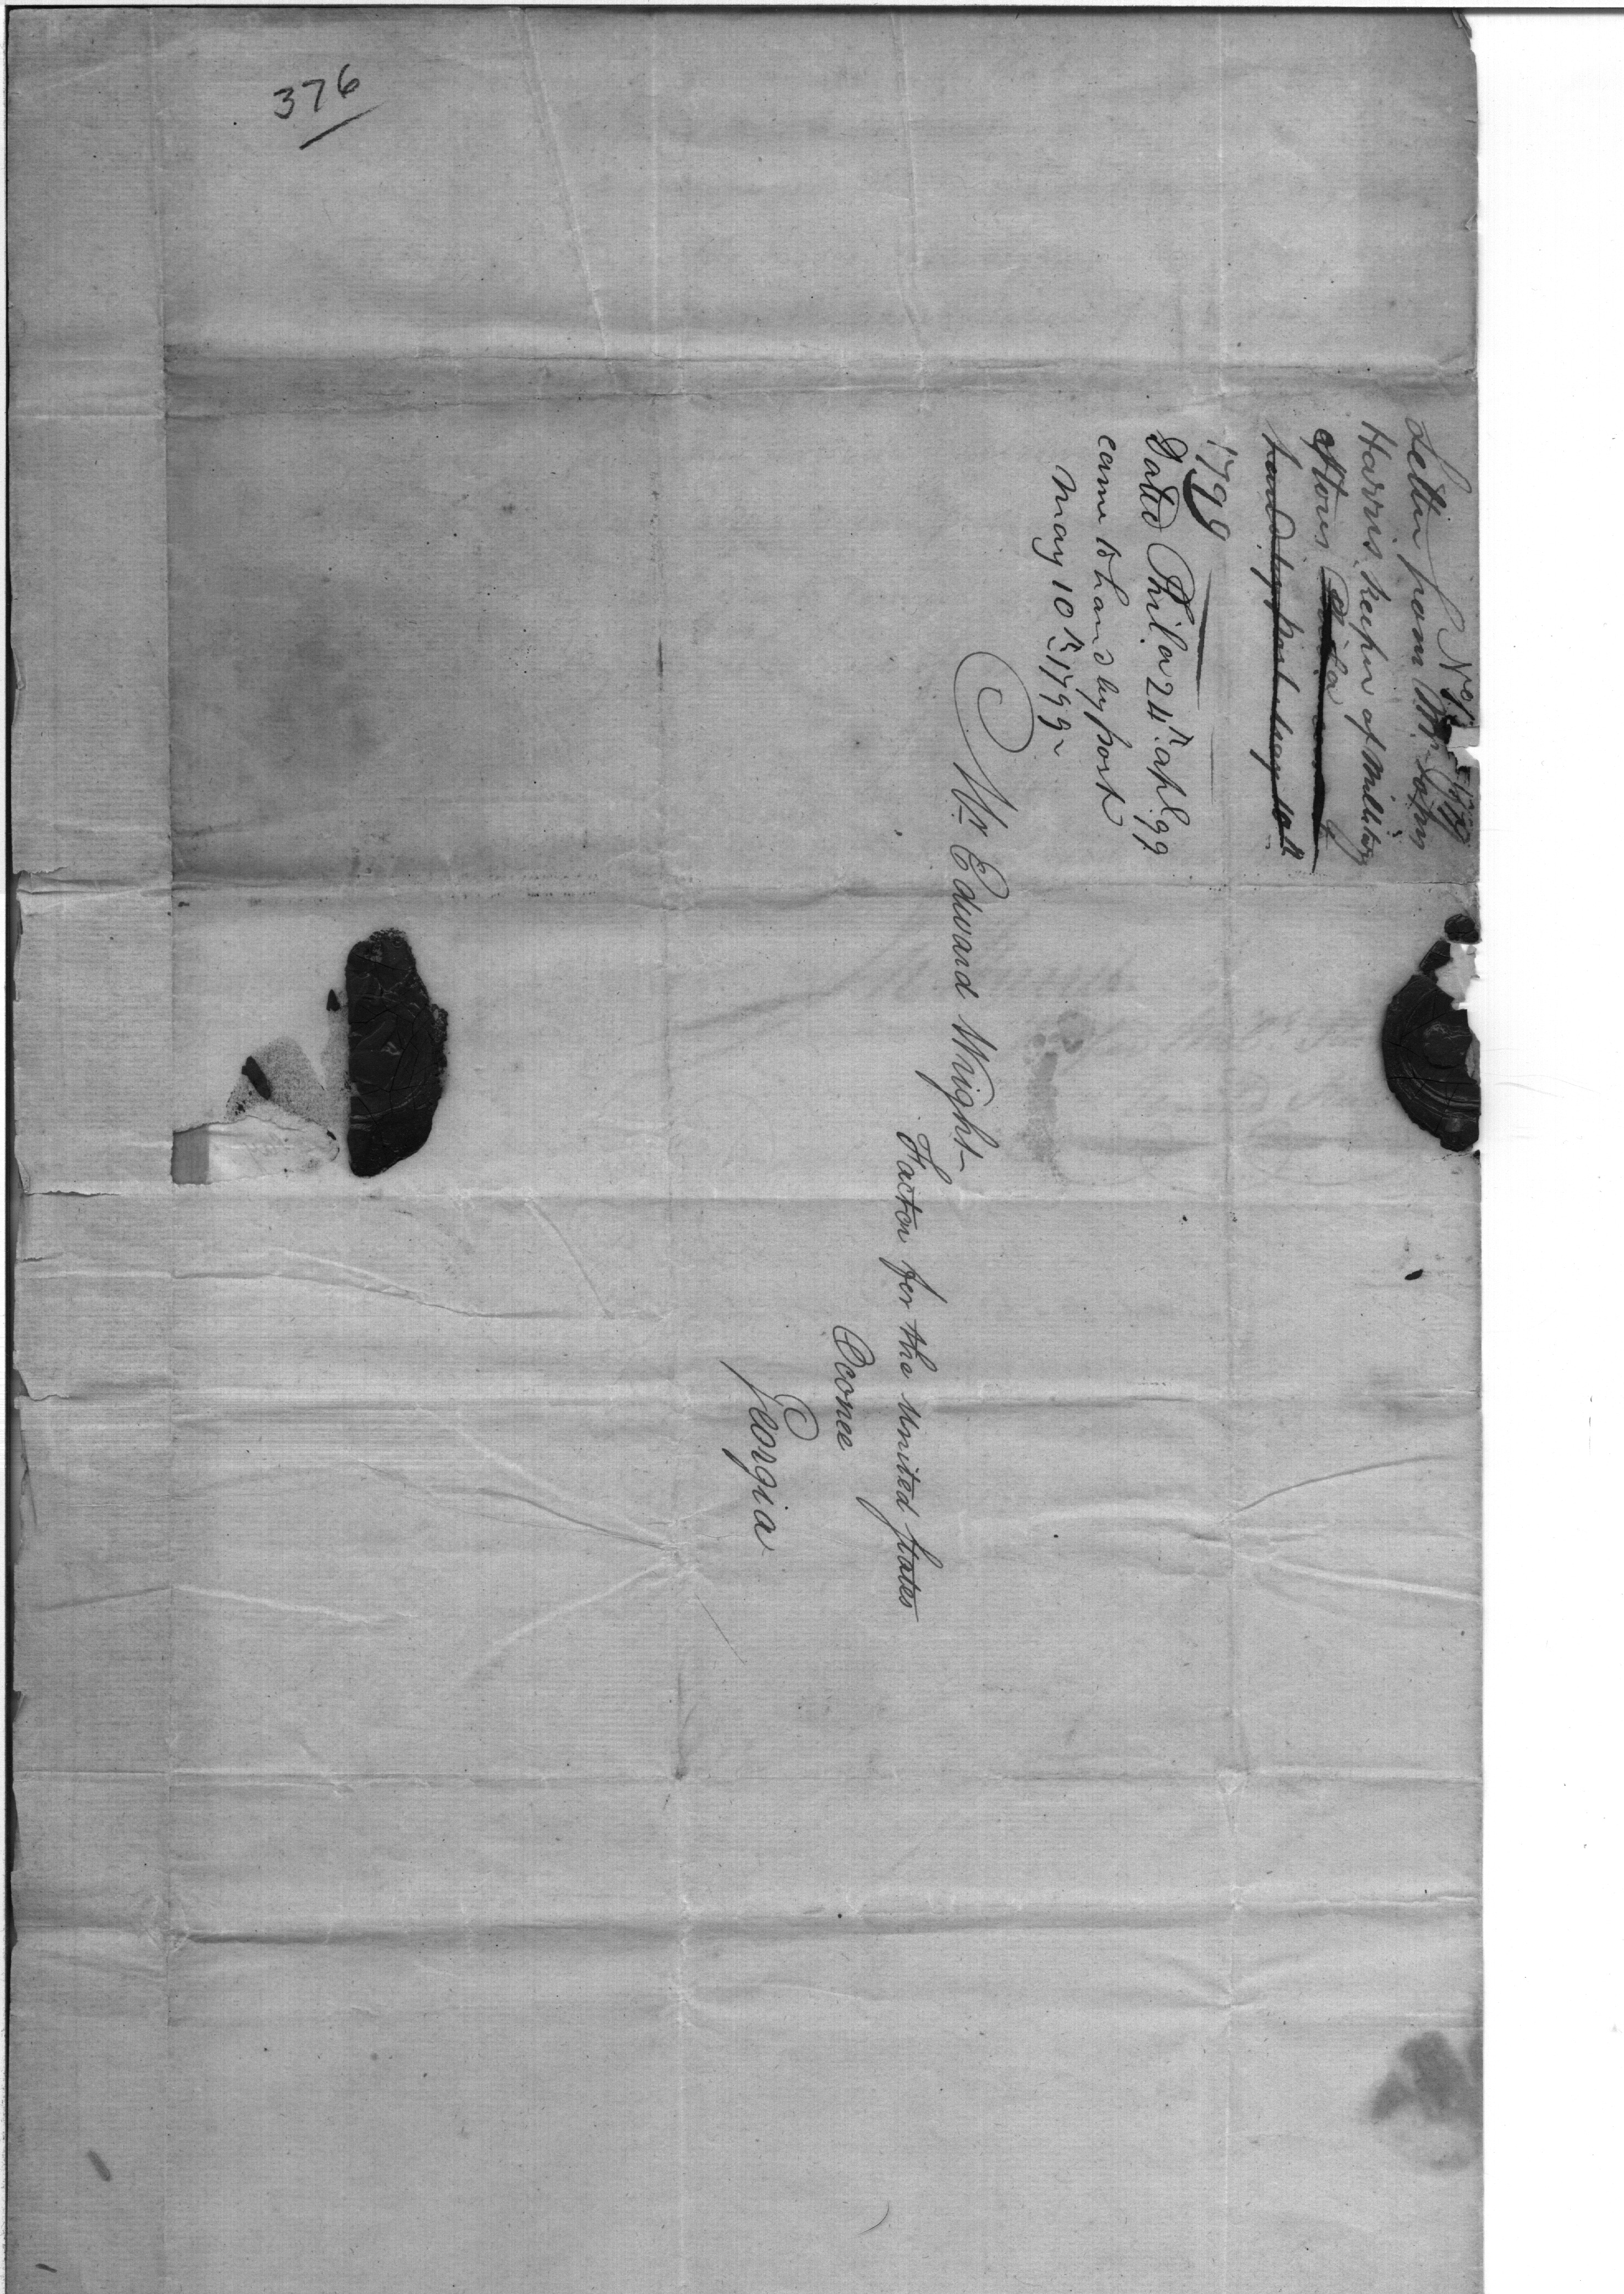 376
No
Letter from Mr. John
Harris keeper of Millitary
Stores Phila
hand by post may 10th
1799
Dated Phila 24th. apl. 99
came to hand by post
May 10th 1799
Mr Edward Wright
Factor for the United States
Oconee
Georgia